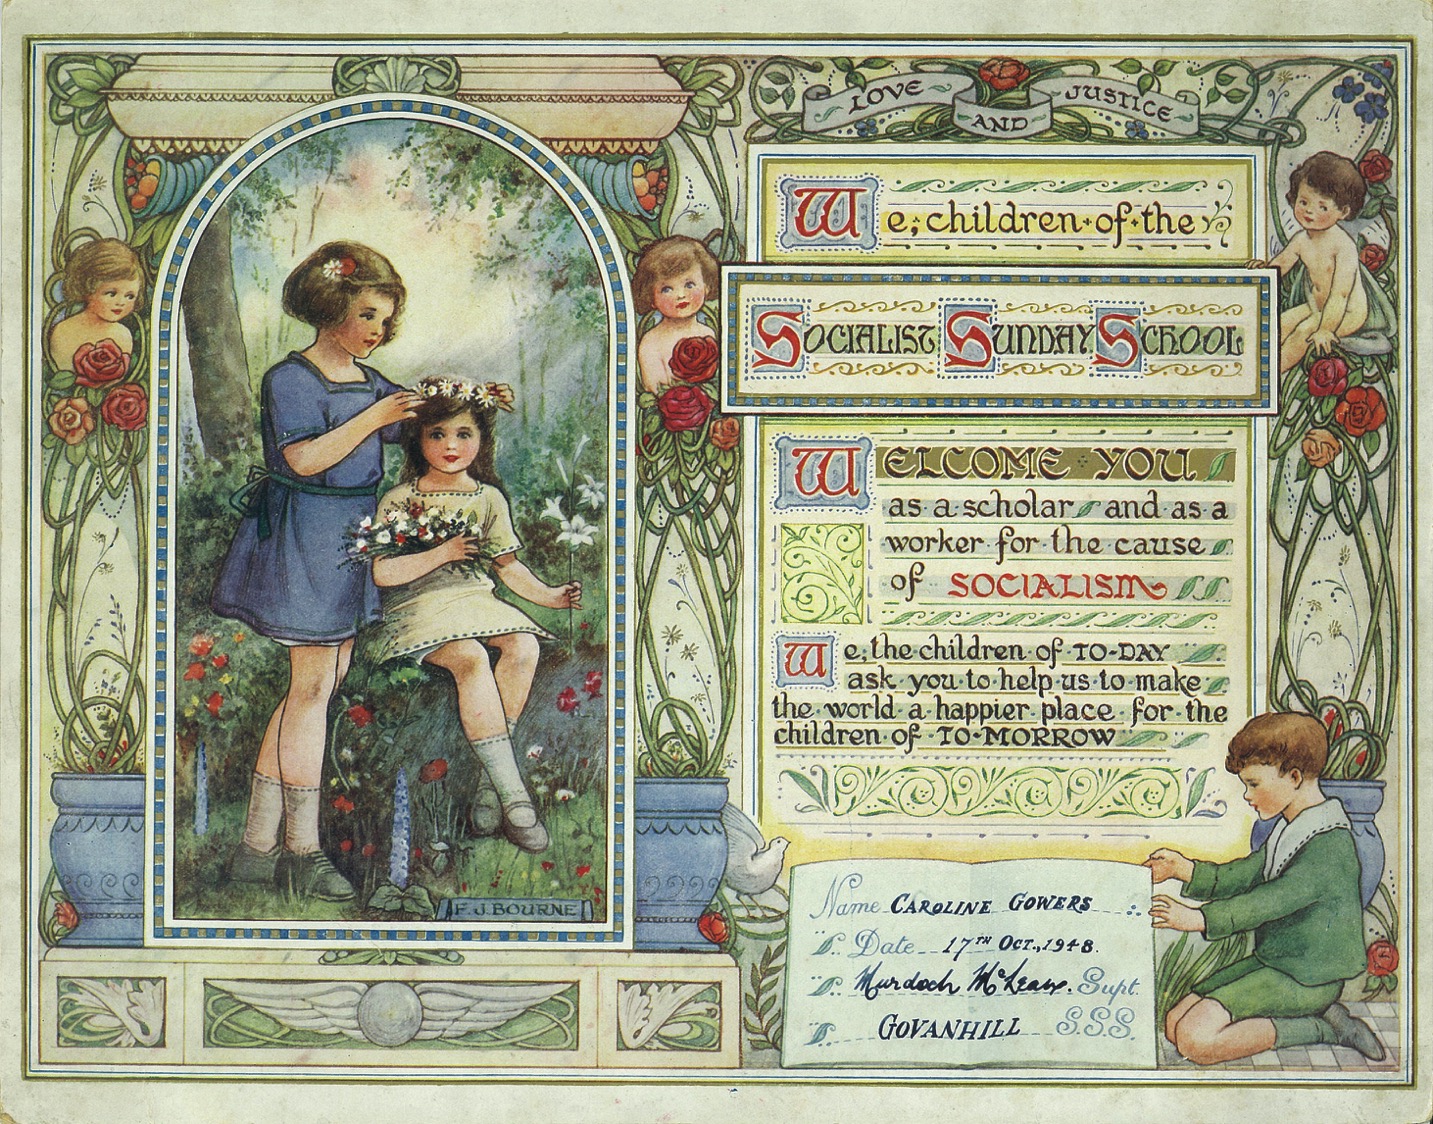 LOVE AND JUSTICE
We, children of the
SOCIALIST SUNDAY SCHOOL
WELCOME YOU
as a scholar and as a
worker for the cause
of SOCIALISM
We, the children of TO-DAY
ask you to help us to make
the world a happier place for the
children of TO-MORROW
F. J. BOURNE
Name CAROLINE GOWERS
Date 17TH OCT., 1948.
Murdoch McLean. Supt.
GOVANHILL S.S.S.